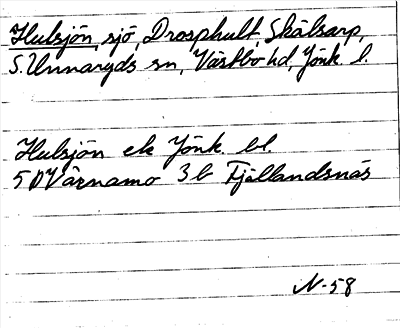 Hulsjön, sjö, Drosphult, Skälsarp,
S. Unnaryds sn, Västbo hd, Jönk l.
Hulsjön ek Jönk. bl.
5D Värnamo 3b Fjällandsnäs
N-58